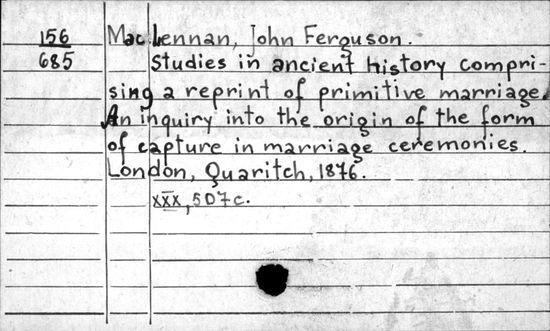 156
685
Mac Lennan, John Ferguson.
Studies in ancient history compri-
sing a reprint of primitive marriage.
An inquiry into the origin of the form
of capture in marriage ceremonies.
London, Quaritch, 1876.
xxx, 507 c.